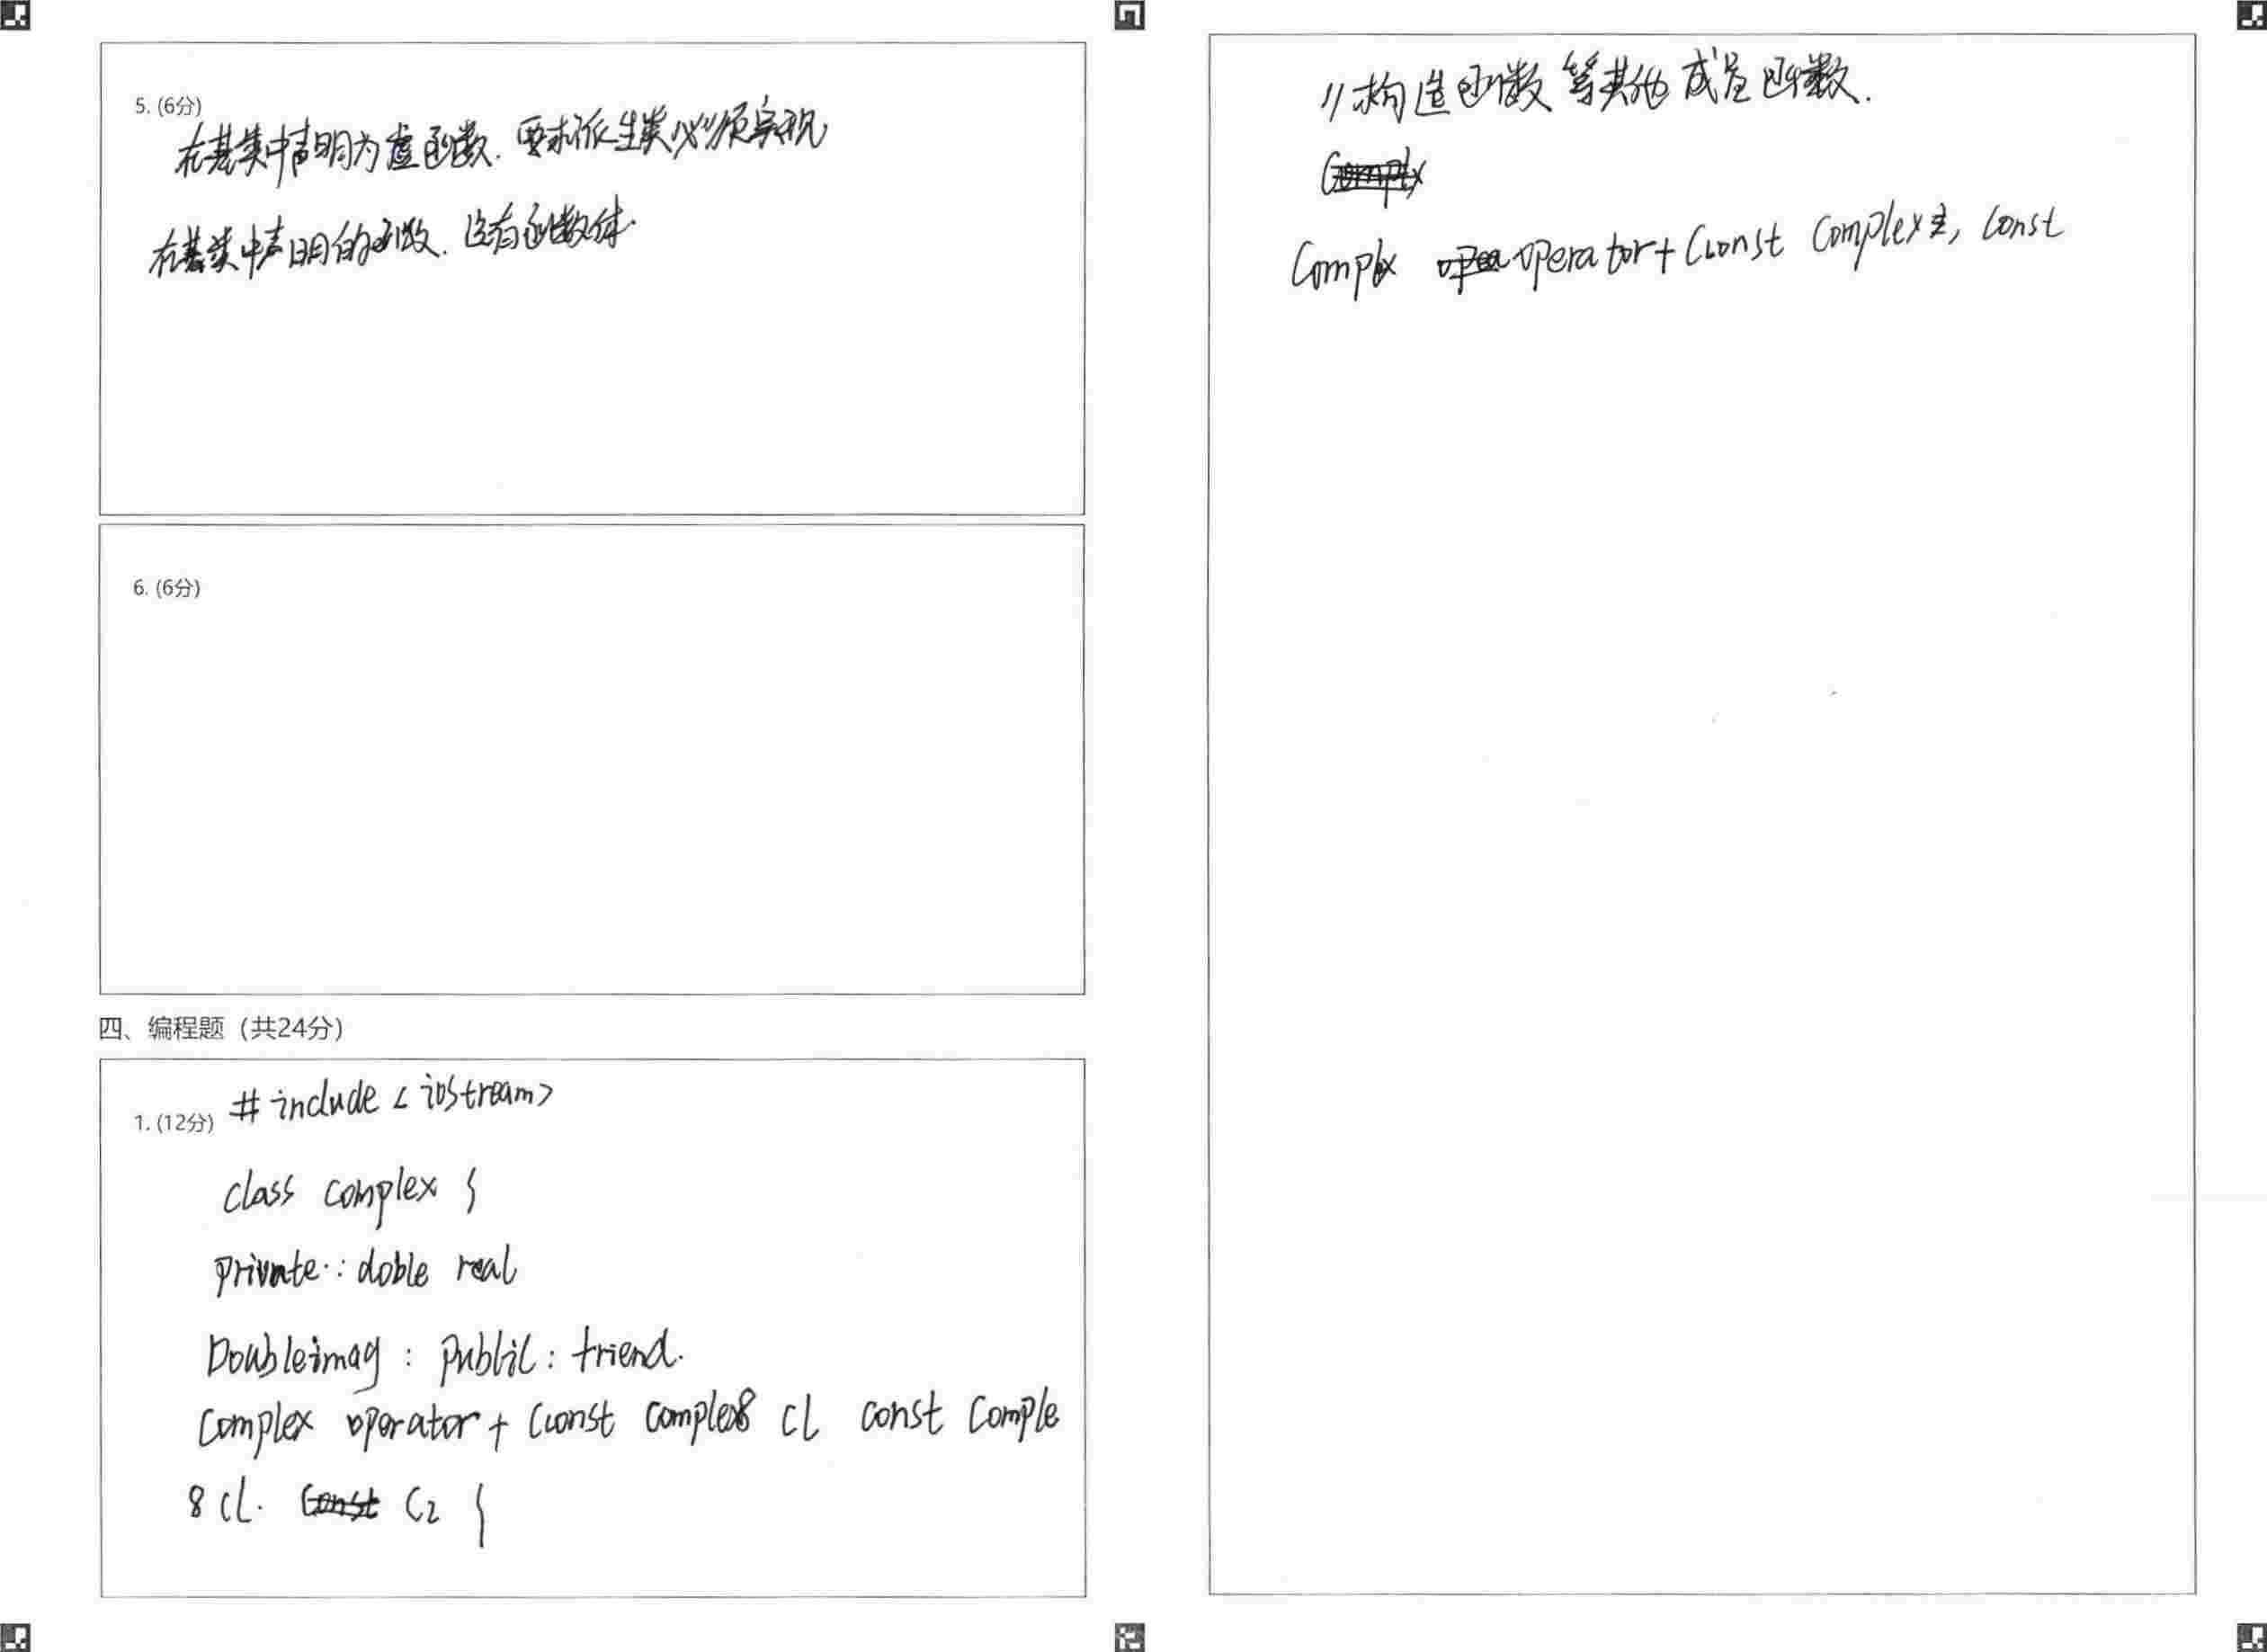 5. (6分)
在基类中声明为虚函数. 要求派生类必须实现
在基类中声明的函数. 没有函数体.
6. (6分)
四、编程题（共24分）
1. (12分) #include <iostream>
class complex {
private:: doble real
Doubleimag : public: friend.
Complex operator+ (const complex& cl const Comple
& cl. C2 {
//构造函数等其他成员函数.
Complex operator+ (const Complex &, const